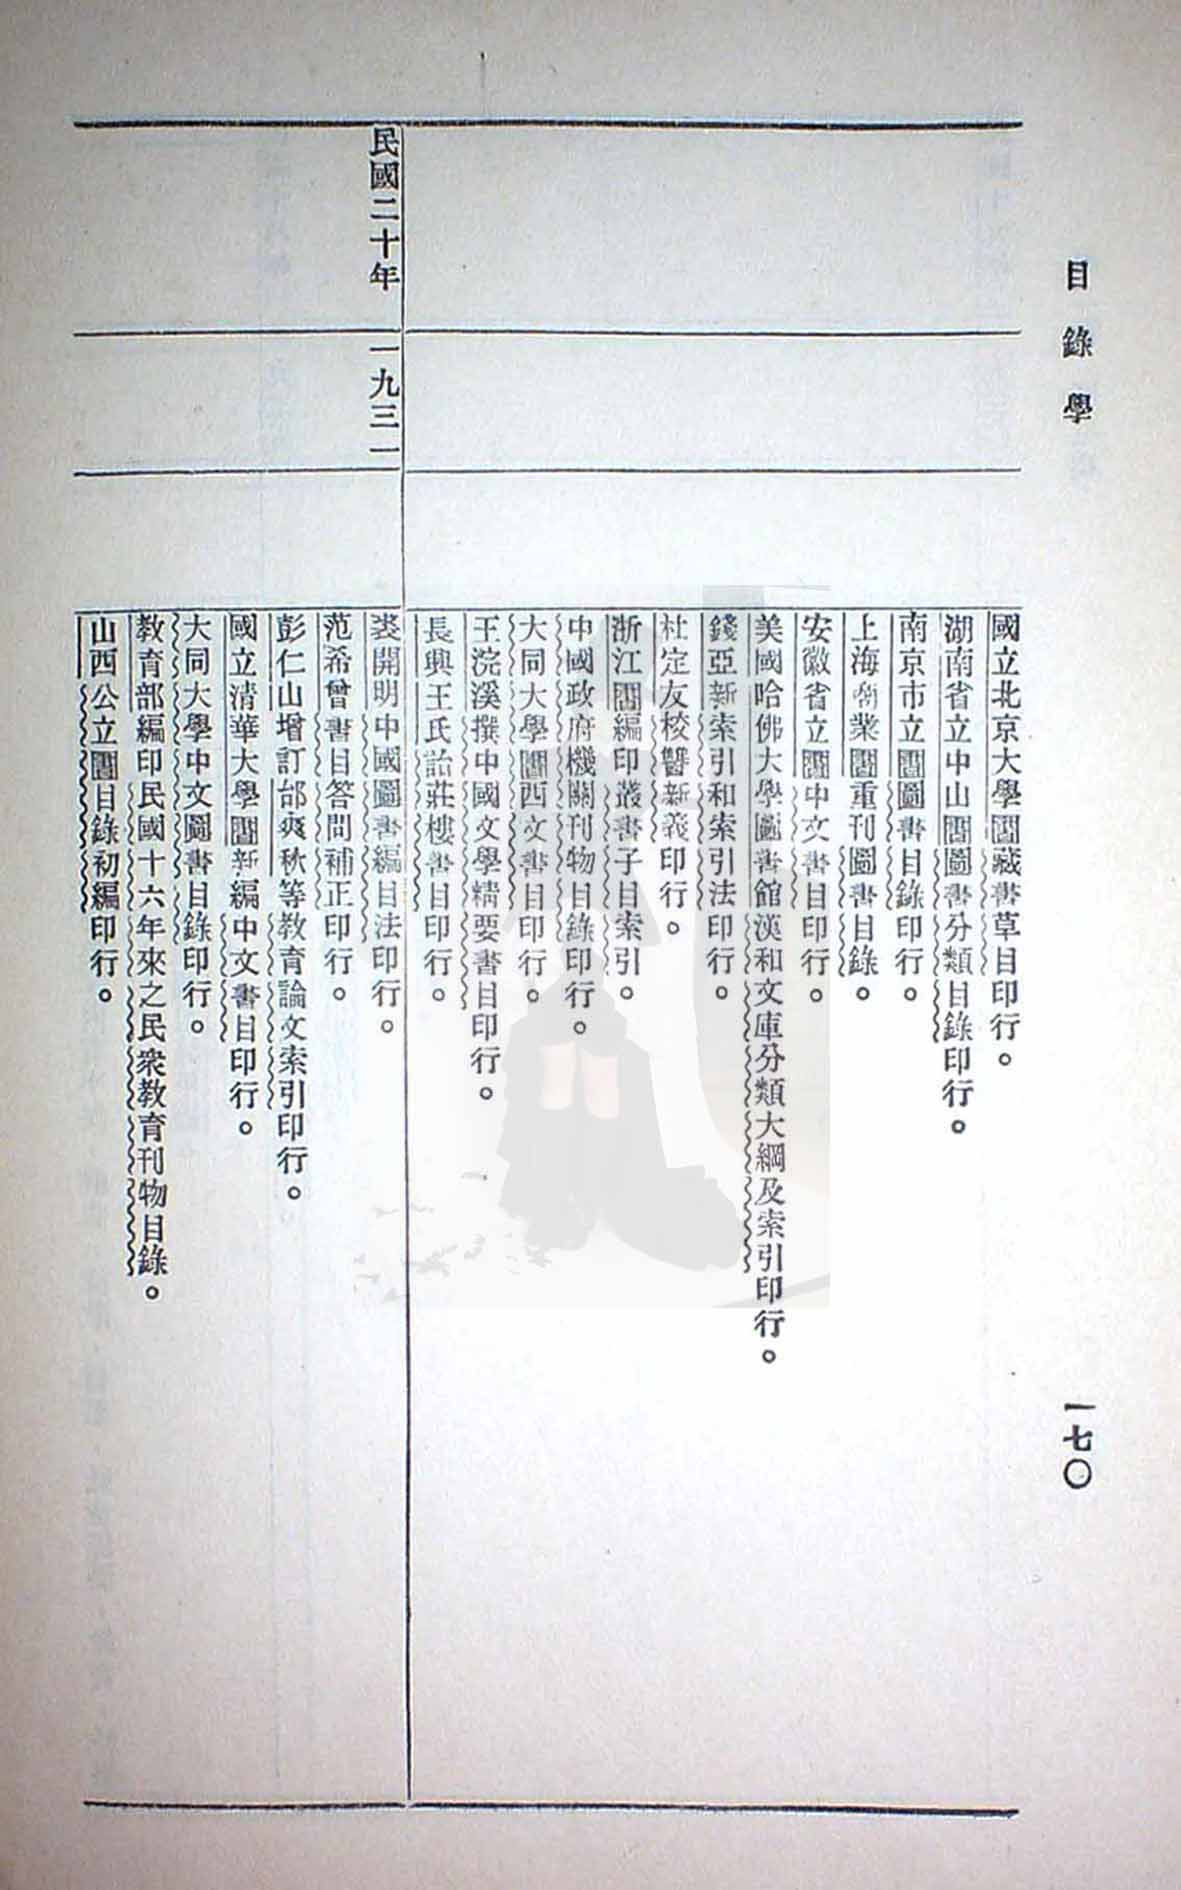 目錄學
一七〇
國立北京大學圕藏書草目印行。
湖南省立中山圕圖書分類目錄印行。
南京市立圕圖書目錄印行。
上海商業圕重刊圖書目錄。
安徽省立圕中文書目印行。
美國哈佛大學圖書館漢和文庫分類大綱及索引印行。
錢亞新索引和索引法印行。
杜定友校讐新義印行。
浙江圕編印叢書子目索引。
中國政府機關刊物目錄印行。
大同大學圕西文書目印行。
王浣溪撰中國文學精要書目印行。
長興王氏詒莊樓書目印行。
民國二十年
一九三一
裘開明中國圖書編目法印行。
范希曾書目答問補正印行。
彭仁山增訂邰爽秋等教育論文索引印行。
國立清華大學圕新編中文書目印行。
大同大學中文圖書目錄印行。
教育部編印民國十六年來之民衆教育刊物目錄。
山西公立圕目錄初編印行。